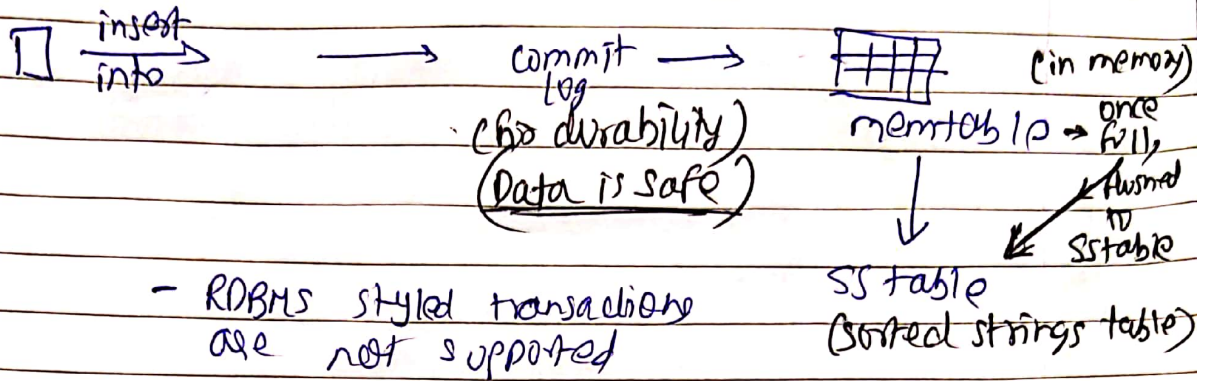 insert
into
commit
log
(for durability)
(Data is safe)
(in memory)
memtable → once
full,
flushed
to
SStable
SS table
(sorted strings table)
- RDBMS styled transactions
are not supported